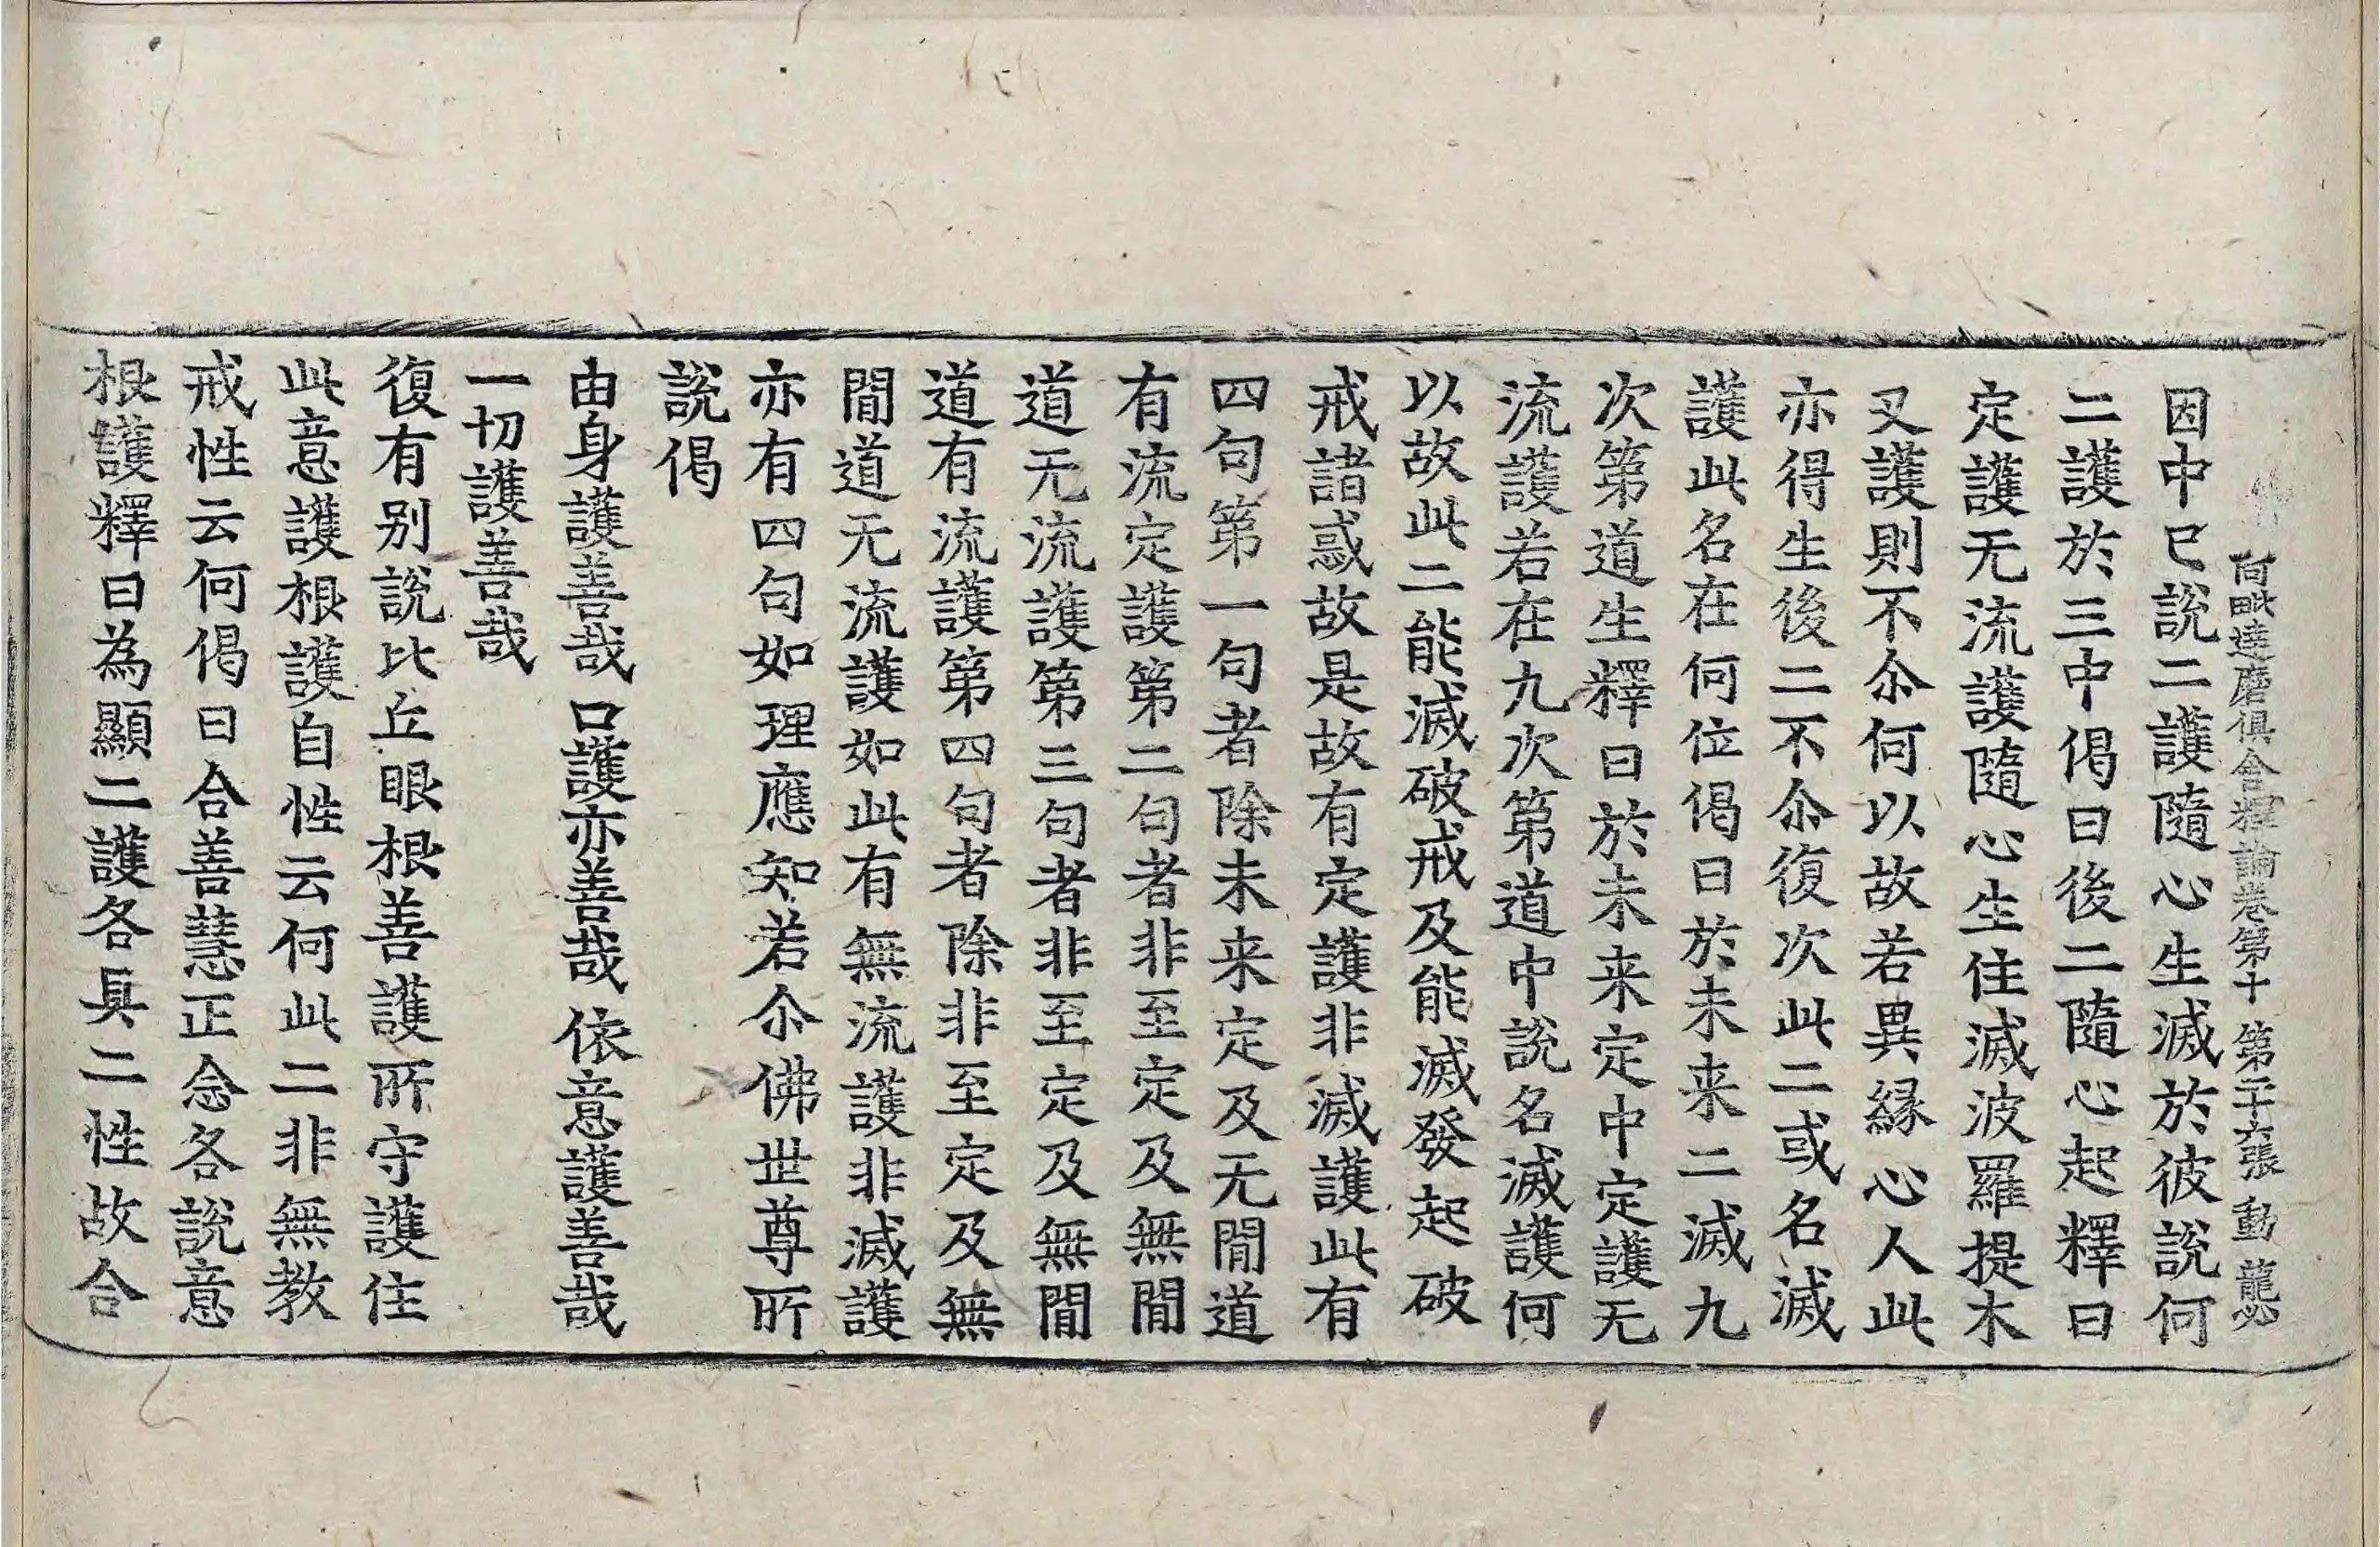 阿毗達磨俱舍釋論卷第十 第 張 動 龍
因中已說二護隨心生滅於彼說何
二護於三中偈曰後二隨心起釋曰
定護无流護隨心生住滅波羅提木
叉護則不尒何以故若異緣心人此
亦得生後二不尒復次此二或名滅
護此名在何位偈曰於未来二滅九
次第道生釋曰於未来定中定護无
流護若在九次第道中說名滅護何
以故此二能滅破戒及能滅發起破
戒諸惑故是故有定護非滅護此有
四句第一句者除未来定及无間道
有流定護第二句者非至定及無間
道无流護第三句者非至定及無間
道有流護第四句者除非至定及無
間道无流護如此有無流護非滅護
亦有四句如理應知若尒佛世尊所
說偈
由身護善哉 口護亦善哉 依意護善哉
一切護善哉
復有別說比丘眼根善護所守護住
此意護根護自性云何此二非無教
戒性云何偈曰合善慧正念各說意
根護釋曰為顯二護各具二性故合